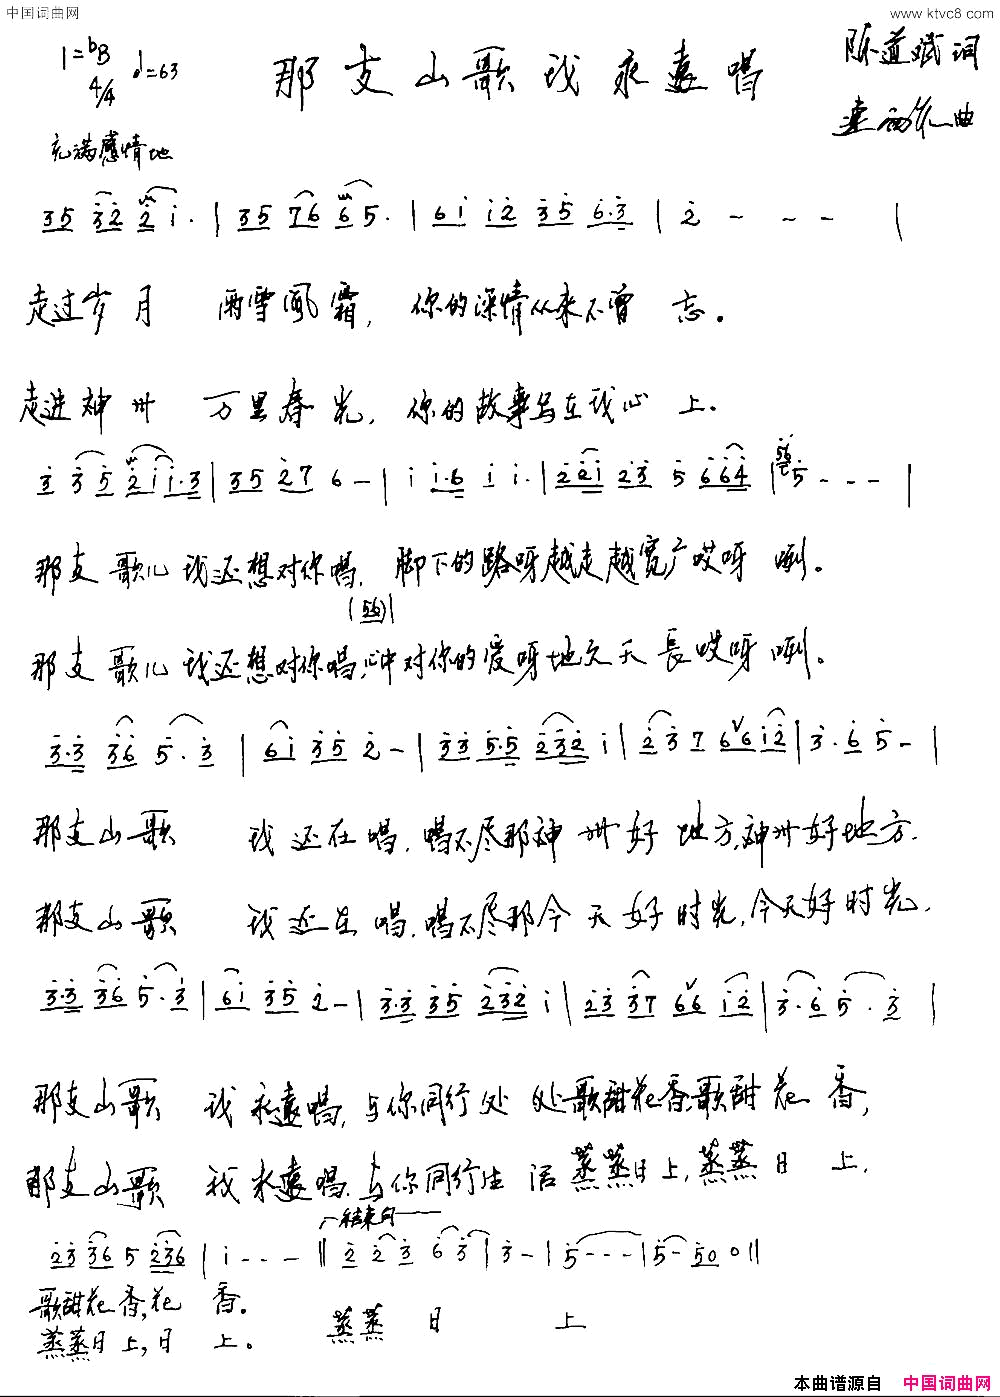 中国词曲网
www.ktvc8.com
1=bB
4/4 ♩=63
那支山歌我永遠唱
陈道斌词
曲
充满感情地
35 32 2 1· | 35 76 6 5· | 61 12 35 6·3 | 2 - - - |
走过岁月 雨雪風霜，你的深情从来不曾 忘。
走进神州 万里春光，你的故事写在我心 上.
3 35 211·3 | 35 27 6 - | 1 1·6 1 1· | 221 23 5 664 | 56 5 - - - |
那支歌儿我还想对你唱，脚下的路呀越走越宽广哎呀 咧。
(56)
那支歌儿我还想对你唱，心中对你的爱呀地久天長哎呀 咧。
3·3 36 5·3 | 61 35 2 - | 33 5·5 232 1 | 23 7 6612 | 3·6 5 - |
那支山歌 我还在唱，唱不尽那神州好地方，神州好地方.
那支山歌 我还在唱，唱不尽那今天好时光，今天好时光.
3·3 36 5·3 | 61 35 2 - | 3·3 35 232 1 | 23 37 66 12 | 3·6 5·3 |
那支山歌 我永遠唱，与你同行处处歌甜花香，歌甜花香，
那支山歌 我永遠唱，与你同行生活蒸蒸日上，蒸蒸日上.
结束句
23 36 5 236 | 1 - - - || 2 2 3 6 3 | 3 - | 5 - - - | 5 - 50 0 ||
歌甜花香，花 香.
蒸蒸日上，日 上。
蒸蒸 日 上
本曲谱源自 中国词曲网